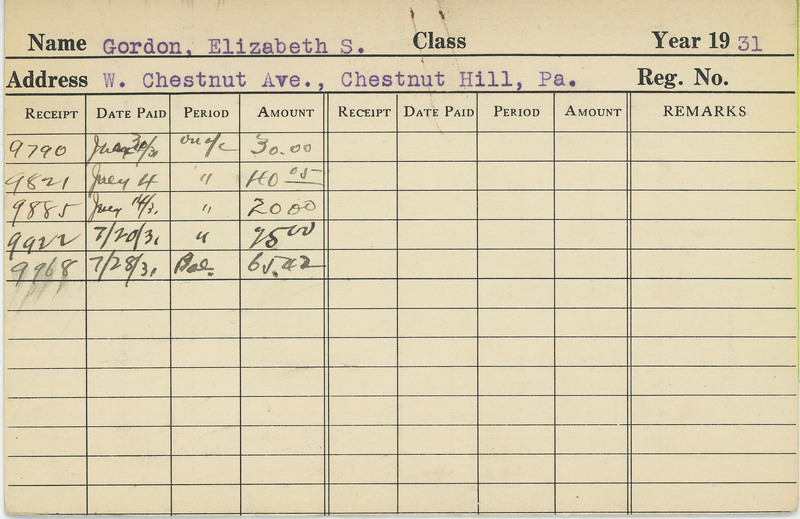 Name Gordon, Elizabeth S. Class Year 19 31
Address W. Chestnut Ave., Chestnut Hill, Pa. Reg. No.
RECEIPT DATE PAID PERIOD AMOUNT RECEIPT DATE PAID PERIOD AMOUNT REMARKS
9790 30/31 on a/c 30.00
9821 July 4 " 40 05
9885 July 14/31 " 20 00
9922 7/20/31 "
9968 7/28/31 Bal. 65.42